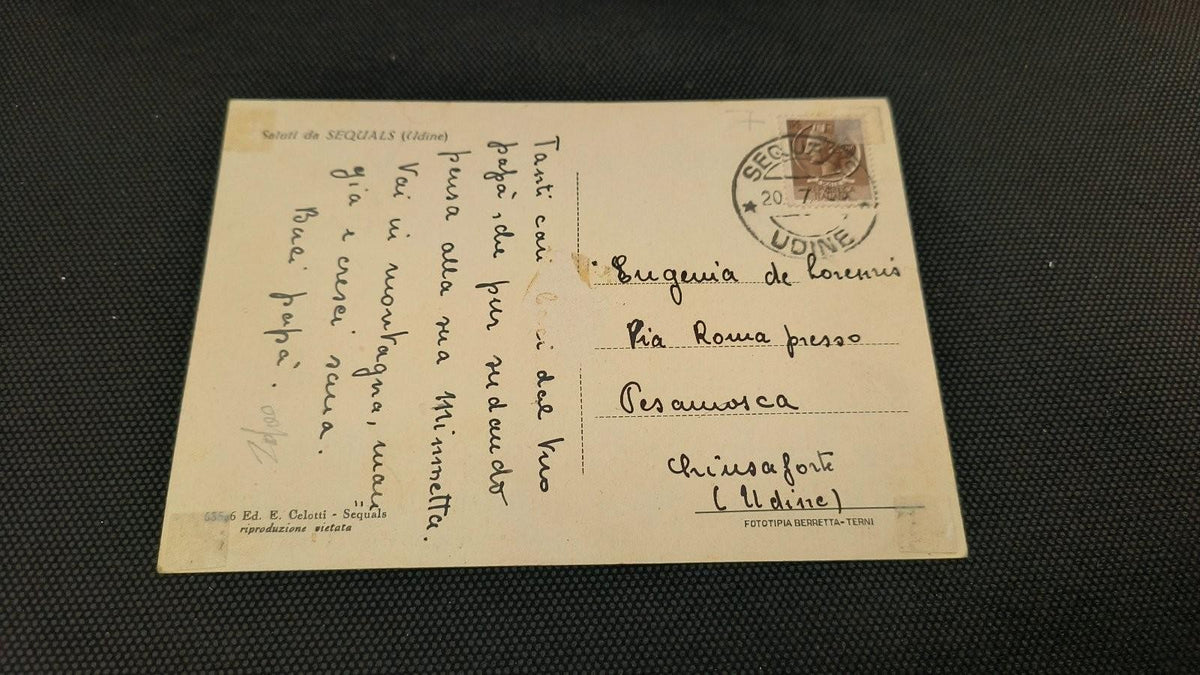 Saluti da SEQUALS (Udine)
Tanti cari del tuo
papà, che pur sudando
pensa alla sua Mimmetta.
Vai in montagna, man
gia e cresci sana.
Baci papà.
2000
6 Ed. E. Celotti - Sequals
riproduzione vietata
SEQUALS
20 7
UDINE
Eugenia de Lorenzis
Via Roma presso
Pesamosca
Chiusaforte
(Udine)
FOTOTIPIA BERRETTA - TERNI